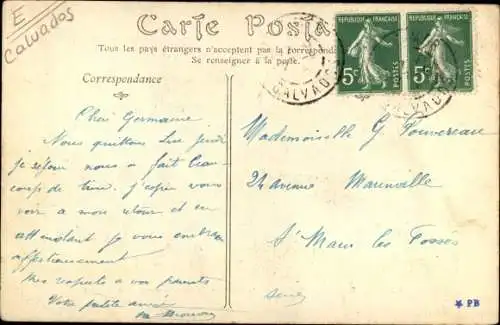 E
Calvados
Carte Postale
Tous les pays étrangers n'acceptent pas la correspondance
Se renseigner à la poste.
Correspondance
RÉPUBLIQUE FRANÇAISE
5c
POSTES
RÉPUBLIQUE FRANÇAISE
5c
POSTES
CALVADOS
CALVADOS
Chère Germaine
Nous quittons Luc jeudi
le séjour nous a fait beau-
coup de bien. J'espère vous
voir a mon retour et en
attendant je vous embrasse
affectueusement
Mes respects a vos parents
Votre petite amie
Mademoiselle G Pouvereau
24 avenue Marinville
St Maur les Fossés
Seine
PB